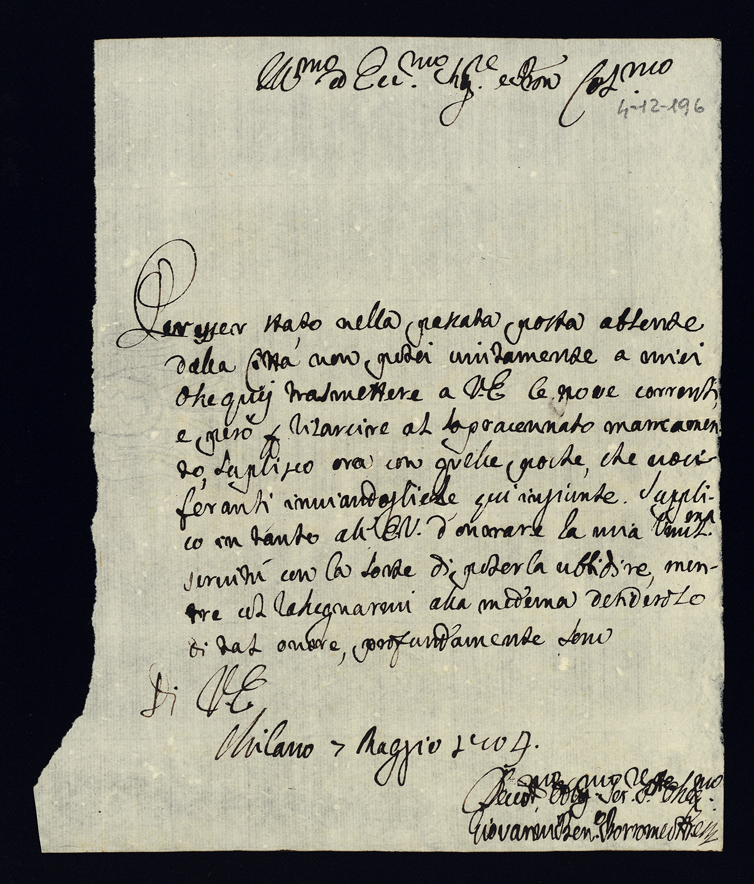 Ill.mo ed Ecc.mo Sig.re e Pron Col.mo
4-12-196
Per esser stato nella passata posta assente
dalla Città non potei unitamente a miei
Ossequij trasmettere a V.E. le nove correnti,
e però risarcire al sopracennato mancamen
to, suplisco ora con quelle poche, che voci-
feranti inviandogliele qui ingiunte. Suppli-
co in tanto all' E.V. d'onorare la mia
servitù con la sorte di poterla ubbidire, men-
tre col rassegnarmi alla med.ma desideroso
di tal onore, profundamente sono
Di V.E.
Milano 7 Maggio 1704.
Devot.mo Oblig.mo Ser.re
Giovanni Ben. Borromeo